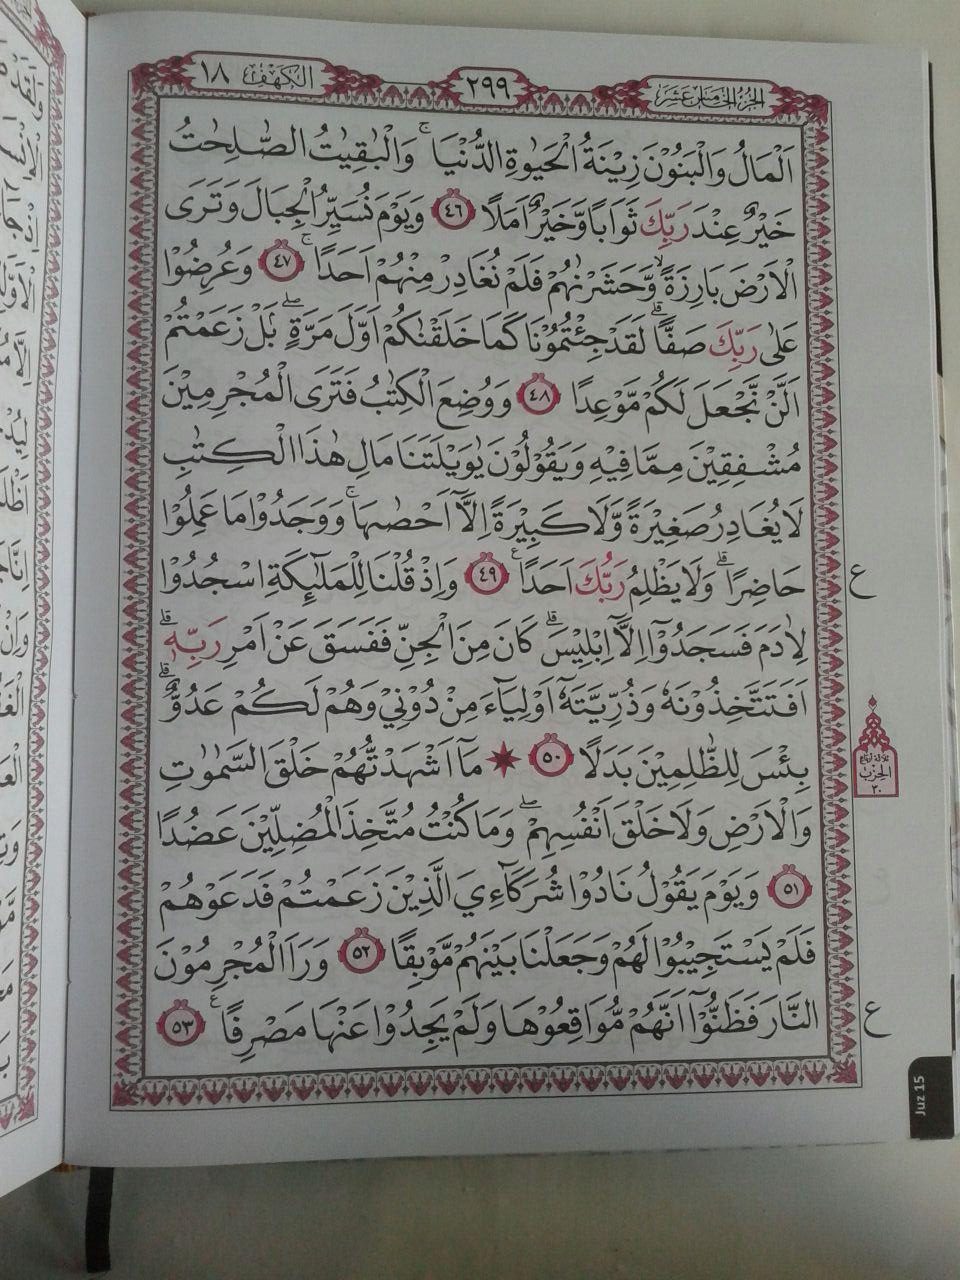 الجزء الخامس عشر
٢٩٩
الكهف ١٨
اَلْمَالُ وَالْبَنُوْنَ زِيْنَةُ الْحَيٰوةِ الدُّنْيَاۚ وَالْبٰقِيٰتُ الصّٰلِحٰتُ
خَيْرٌ عِنْدَ رَبِّكَ ثَوَابًا وَّخَيْرٌ اَمَلًا ٤٦ وَيَوْمَ نُسَيِّرُ الْجِبَالَ وَتَرَى
الْاَرْضَ بَارِزَةًۙ وَّحَشَرْنٰهُمْ فَلَمْ نُغَادِرْ مِنْهُمْ اَحَدًاۚ ٤٧ وَعُرِضُوْا
عَلٰى رَبِّكَ صَفًّاۗ لَقَدْ جِئْتُمُوْنَا كَمَا خَلَقْنٰكُمْ اَوَّلَ مَرَّةٍۖ بَلْ زَعَمْتُمْ
اَلَّنْ نَّجْعَلَ لَكُمْ مَّوْعِدًا ٤٨ وَوُضِعَ الْكِتٰبُ فَتَرَى الْمُجْرِمِيْنَ
مُشْفِقِيْنَ مِمَّا فِيْهِ وَيَقُوْلُوْنَ يٰوَيْلَتَنَا مَالِ هٰذَا الْكِتٰبِ
لَا يُغَادِرُ صَغِيْرَةً وَّلَا كَبِيْرَةً اِلَّآ اَحْصٰىهَاۚ وَوَجَدُوْا مَا عَمِلُوْا
حَاضِرًاۗ وَلَا يَظْلِمُ رَبُّكَ اَحَدًا ࣖ ٤٩ وَاِذْ قُلْنَا لِلْمَلٰۤىِٕكَةِ اسْجُدُوْا
لِاٰدَمَ فَسَجَدُوْٓا اِلَّآ اِبْلِيْسَۗ كَانَ مِنَ الْجِنِّ فَفَسَقَ عَنْ اَمْرِ رَبِّهٖۗ
اَفَتَتَّخِذُوْنَهٗ وَذُرِّيَّتَهٗٓ اَوْلِيَاۤءَ مِنْ دُوْنِيْ وَهُمْ لَكُمْ عَدُوٌّۗ
بِئْسَ لِلظّٰلِمِيْنَ بَدَلًا ٥٠ ۞ مَآ اَشْهَدْتُّهُمْ خَلْقَ السَّمٰوٰتِ
وَالْاَرْضِ وَلَا خَلْقَ اَنْفُسِهِمْۖ وَمَا كُنْتُ مُتَّخِذَ الْمُضِلِّيْنَ عَضُدًا
٥١ وَيَوْمَ يَقُوْلُ نَادُوْا شُرَكَاۤءِيَ الَّذِيْنَ زَعَمْتُمْ فَدَعَوْهُمْ
فَلَمْ يَسْتَجِيْبُوْا لَهُمْ وَجَعَلْنَا بَيْنَهُمْ مَّوْبِقًا ٥٢ وَرَاَ الْمُجْرِمُوْنَ
النَّارَ فَظَنُّوْٓا اَنَّهُمْ مُّوَاقِعُوْهَا وَلَمْ يَجِدُوْا عَنْهَا مَصْرِفًا ࣖ ٥٣
ع
ثلاثة ارباع
الحزب
٣٠
ع
Juz 15